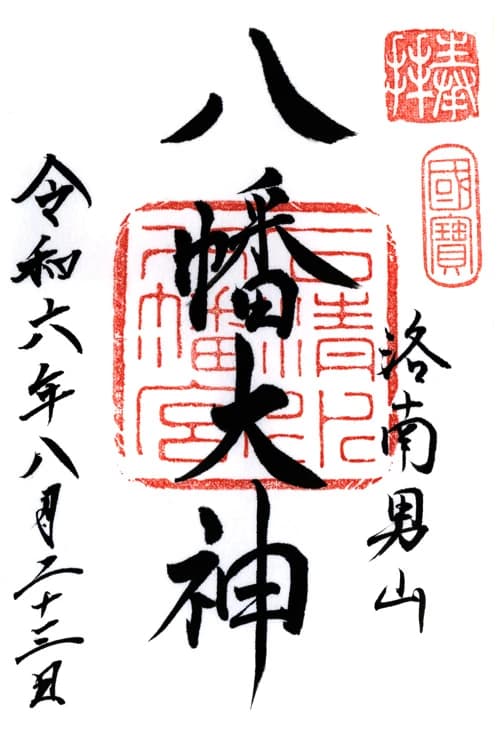 奉拝
國寶
洛南男山
八幡大神
石清水八幡宮
令和六年八月二十三日